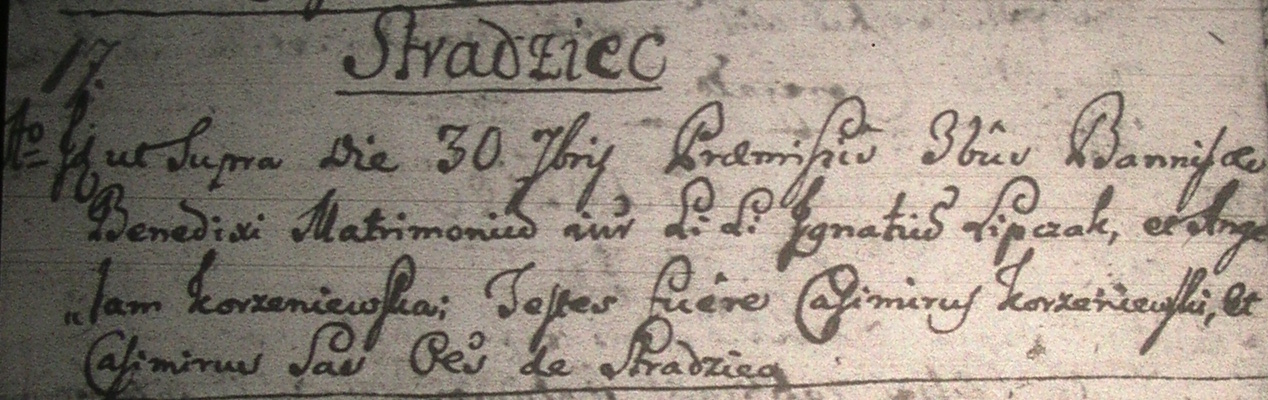 17. Stradziec
Idem ut Supra Die 30 7bris Præmissis 3bus Bannis de
Benedixi Matrimonium inter Li Li Ignatium Lipczak, et Ange
„lam Korzeniewska; Testes fuere Casimirus Korzeniewski, et
Casimirus Sas Oes de Stradziec